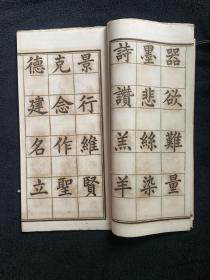 器欲難量
墨悲絲染
詩讚羔羊
景行維賢
克念作聖
德建名立